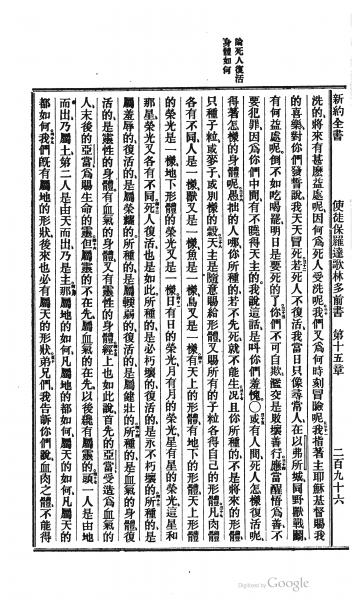 新約全書 使徒保羅達歌林多前書 第十五章 二百九十六
論死人復活
身體如何
洗的將來有甚麽益處呢、因何爲死人受洗呢、我們又爲何時刻冒險呢、我指著主耶穌基督賜我
的喜樂、對你們發誓說、我天天冒死、若死人不復活、我當日只像尋常人、在以弗所城、同野獸戰鬬、
有何益處呢、倒不如吃喝罷、明日是要死的了、你們不可自欺、濫交是敗壞善行、應當醒悟爲善、不
要犯罪、因爲你們中間有不曉得天主的、我說這話是叫你們羞愧、〇或有人問死人怎樣復活呢、
得著怎樣的身體呢、愚拙的人哪、你所種的、若不先死、就不能生、況且你所種的、不是將來的形體、
只種子粒、或麥子、或別樣的穀、天主是隨意賜給形體、又賜所有的子粒各得自己的形體、凡肉體
各有不同、人是一樣、獸又是一樣、魚是一樣、鳥又是一樣、有天上的形體、有地下的形體、天上形體
的榮光是一樣、地下形體的榮光又是一樣、日有日的榮光、月有月的榮光、星有星的榮光、這星和
那星榮光又各有不同、死人復活也是如此、所種的、是必朽壞的、復活的、是不朽壞的、所種的、是
屬羞辱的、復活的、是屬榮耀的、所種的、是屬輭弱的、復活的、是屬健壯的、所種的、是血氣的身體、復
活的、是靈性的身體、有血氣的身體、又有靈性的身體、經上也如此說、首先的亞當受造爲血氣的
人、末後的亞當爲賜生命的靈、但屬靈的不在先、屬血氣的在先、以後纔有屬靈的、頭一人是由地
而出、乃屬土、第二人是由天而出、乃是主、那屬地的如何、凡屬地的都如何、屬天的如何、凡屬天的
都如何、我們既有屬地的形狀、後來也必有屬天的形狀、弟兄們、我告訴你們說、血肉之體、不能得
Digitized by Google